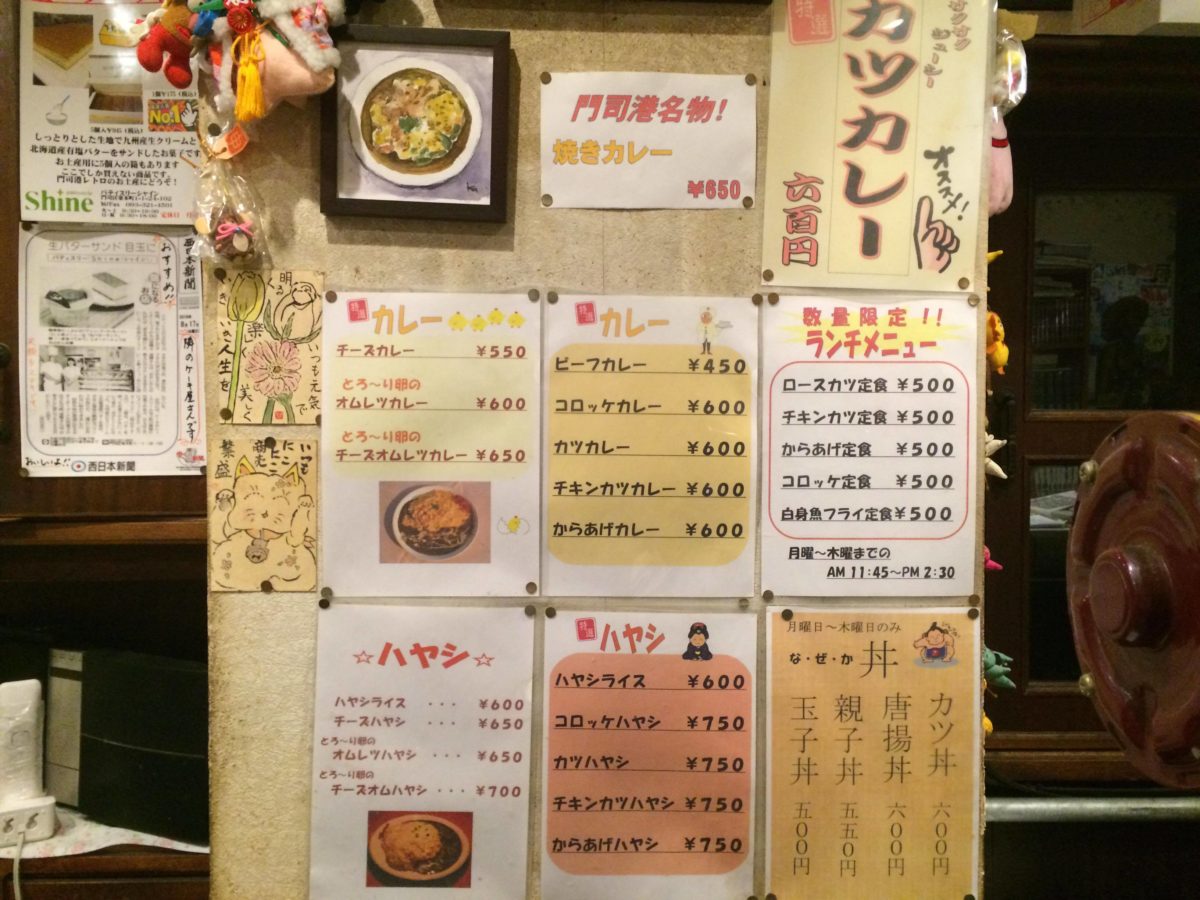 No.1
5個入¥945(税込)
しっとりとした生地で九州産生クリームと
北海道産有塩バターをサンドしたお菓子です
お土産用に5個入の箱もあります
ここでしか買えない商品です。
門司港レトロのお土産にどうぞ!
Shine
パティスリーシャイン
生バターサンド 目玉に
西日本新聞
おすすめ!!
隣のケーキ屋さんです
おいしいよ!!
西日本新聞
明るく
楽しく
美しく
いつも元気で
いきいき人生を
いつも
にこにこ
商売
繁盛
門司港名物!
焼きカレー
¥650
特選
カツカレー
サクサク
ジューシー
オススメ!
六百円
特選
カレー
チーズカレー ¥550
とろ〜り卵の
オムレツカレー ¥600
とろ〜り卵の
チーズオムレツカレー ¥650
特選
カレー
ビーフカレー ¥450
コロッケカレー ¥600
カツカレー ¥600
チキンカツカレー ¥600
からあげカレー ¥600
数量限定!!
ランチメニュー
ロースカツ定食 ¥500
チキンカツ定食 ¥500
からあげ定食 ¥500
コロッケ定食 ¥500
白身魚フライ定食 ¥500
月曜〜木曜までの
AM 11:45〜PM 2:30
☆ハヤシ☆
ハヤシライス ・・・ ¥600
チーズハヤシ ・・・ ¥650
とろ〜り卵の
オムレツハヤシ ・・・ ¥650
とろ〜り卵の
チーズオムハヤシ ・・・ ¥700
特選
ハヤシ
ハヤシライス ¥600
コロッケハヤシ ¥750
カツハヤシ ¥750
チキンカツハヤシ ¥750
からあげハヤシ ¥750
月曜日〜木曜日のみ
な・ぜ・か 丼
カツ丼 六〇〇円
唐揚丼 六〇〇円
親子丼 五五〇円
玉子丼 五〇〇円